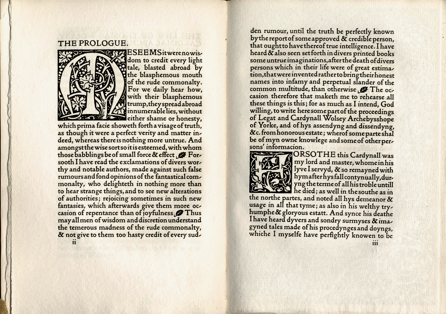 THE PROLOGUE.
ME SEEMS it were no wis-
dom to credit every light
tale, blasted abroad by
the blasphemous mouth
of the rude commonalty.
For we daily hear how,
with their blasphemous
trump, they spread abroad
innumerable lies, without
either shame or honesty,
which prima facie showeth forth a visage of truth,
as though it were a perfect verity and matter in-
deed, whereas there is nothing more untrue. And
amongst the wise sort so it is esteemed, with whom
those babblings be of small force & effect. For-
sooth I have read the exclamations of divers wor-
thy and notable authors, made against such false
rumours and fond opinions of the fantastical com-
monalty, who delighteth in nothing more than
to hear strange things, and to see new alterations
of authorities; rejoicing sometimes in such new
fantasies, which afterwards give them more oc-
casion of repentance than of joyfulness. Thus
may all men of wisdom and discretion understand
the temerous madness of the rude commonalty,
& not give to them too hasty credit of every sud-
ii
den rumour, until the truth be perfectly known
by the report of some approved & credible person,
that ought to have thereof true intelligence. I have
heard & also seen set forth in divers printed books
some untrue imaginations, after the death of divers
persons which in their life were of great estima-
tion, that were invented rather to bring their honest
names into infamy and perpetual slander of the
common multitude, than otherwise. The oc-
casion therefore that maketh me to rehearse all
these things is this; for as much as I intend, God
willing, to write here some part of the proceedings
of Legat and Cardynall Wolsey Archebysshope
of Yorke, and of hys assendyng and dissendyng,
&c. from honorous estate; wherof some parte shal
be of myn owne knowlege and some of other per-
sons' informacion.
FORSOTHE this Cardynall was
my lord and master, whome in his
lyve I servyd, & so remayned with
hym after hys fall contynually, dur-
yng the terme of all his trouble until
he died; as well in the southe as in
the northe partes, and noted all hys demeanor &
usage in all that tyme; as also in his welthy try-
humphe & gloryous estate. And synce his deathe
I have heard dyvers and sondry surmyses & ima-
gyned tales made of his procedynges and doyngs,
whiche I myselfe have perfightly knowen to be
iii